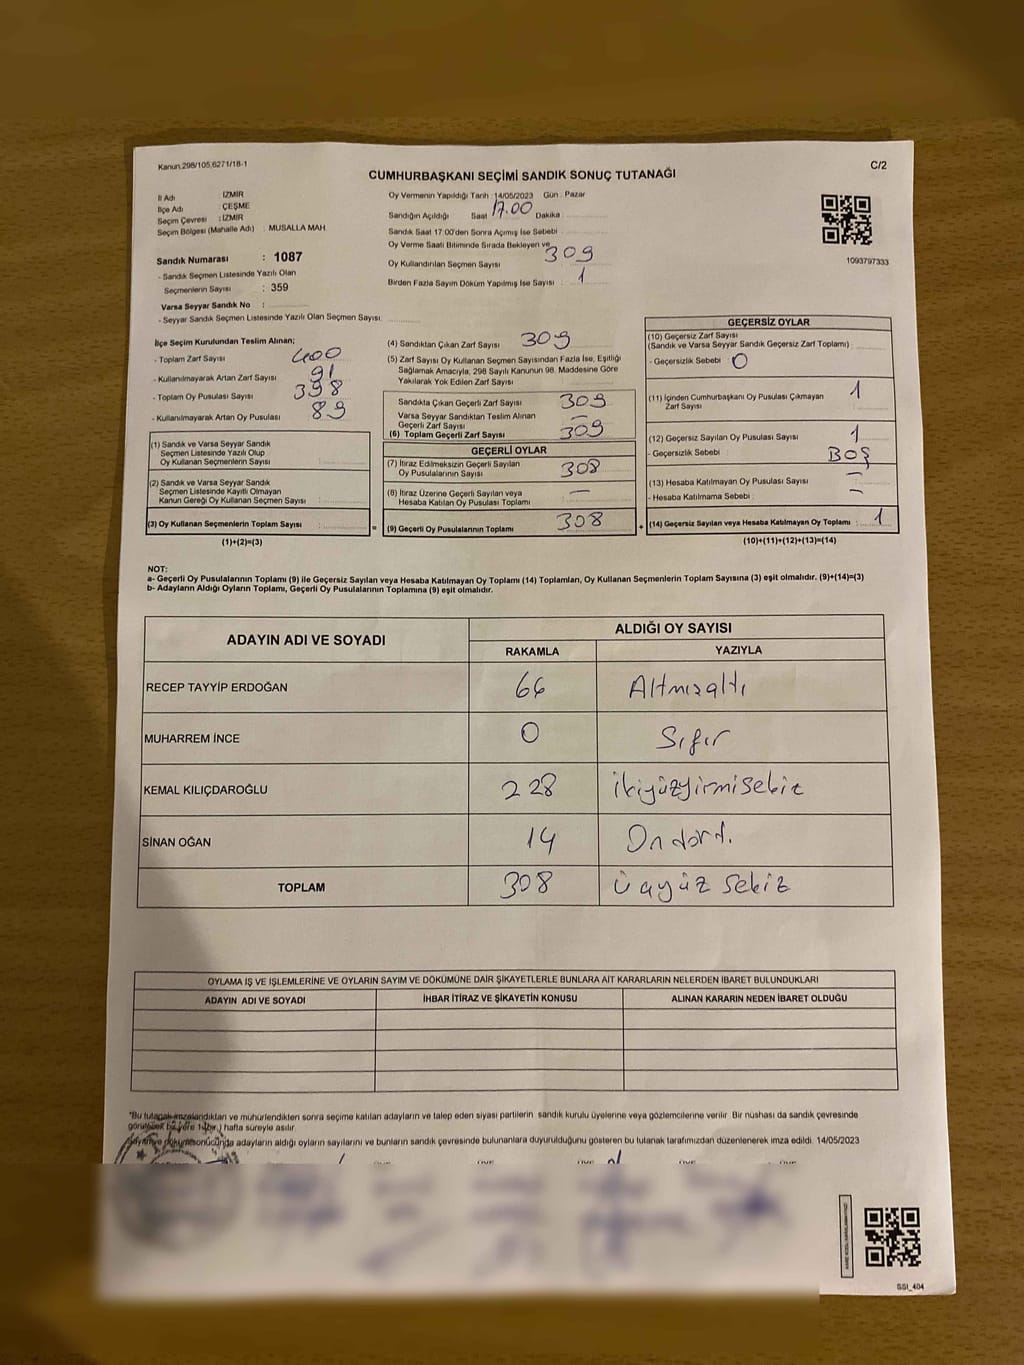 Kanun.298/105,6271/18-1
C/2
CUMHURBAŞKANI SEÇİMİ SANDIK SONUÇ TUTANAĞI
İl Adı : İZMİR
İlçe Adı : ÇEŞME
Seçim Çevresi : İZMİR
Seçim Bölgesi (Mahalle Adı) : MUSALLA MAH
Sandık Numarası : 1087
- Sandık Seçmen Listesinde Yazılı Olan
Seçmenlerin Sayısı : 359
Varsa Seyyar Sandık No :
- Seyyar Sandık Seçmen Listesinde Yazılı Olan Seçmen Sayısı
Oy Vermenin Yapıldığı Tarih : 14/05/2023 Gün : Pazar
Sandığın Açıldığı Saat 17.00 Dakika
Sandık Saat 17:00'den Sonra Açımış İse Sebebi
Oy Verme Saati Bitiminde Sırada Bekleyen ve
Oy Kullandırılan Seçmen Sayısı 309
Birden Fazla Sayım Döküm Yapılmış İse Sayısı : 1
1093797333
İlçe Seçim Kurulundan Teslim Alınan;
- Toplam Zarf Sayısı 400
- Kullanılmayarak Artan Zarf Sayısı 91
- Toplam Oy Pusulası Sayısı 398
- Kullanılmayarak Artan Oy Pusulası 89
(1) Sandık ve Varsa Seyyar Sandık
Seçmen Listesinde Yazılı Olup
Oy Kullanan Seçmenlerin Sayısı
(2) Sandık ve Varsa Seyyar Sandık
Seçmen Listesinde Kayıtlı Olmayan
Kanun Gereği Oy Kullanan Seçmen Sayısı
(3) Oy Kullanan Seçmenlerin Toplam Sayısı :
(1)+(2)=(3)
(4) Sandıktan Çıkan Zarf Sayısı 309
(5) Zarf Sayısı Oy Kullanan Seçmen Sayısından Fazla İse, Eşitliği
Sağlamak Amacıyla, 298 Sayılı Kanunun 98. Maddesine Göre
Yakılarak Yok Edilen Zarf Sayısı
Sandıkta Çıkan Geçerli Zarf Sayısı 309
Varsa Seyyar Sandıktan Teslim Alınan
Geçerli Zarf Sayısı —
(6) Toplam Geçerli Zarf Sayısı 309
GEÇERLİ OYLAR
(7) İtiraz Edilmeksizin Geçerli Sayılan
Oy Pusulasının Sayısı 308
(8) İtiraz Üzerine Geçerli Sayılan veya
Hesaba Katılan Oy Pusulası Toplamı —
= (9) Geçerli Oy Pusulalarının Toplamı 308 +
GEÇERSİZ OYLAR
(10) Geçersiz Zarf Sayısı
(Sandık ve Varsa Seyyar Sandık Geçersiz Zarf Toplamı)
- Geçersizlik Sebebi : 0
(11) İçinden Cumhurbaşkanı Oy Pusulası Çıkmayan
Zarf Sayısı 1
(12) Geçersiz Sayılan Oy Pusulası Sayısı 1
- Geçersizlik Sebebi BOŞ
(13) Hesaba Katılmayan Oy Pusulası Sayısı —
- Hesaba Katılmama Sebebi : —
(14) Geçersiz Sayılan veya Hesaba Katılmayan Oy Toplamı : 1
(10)+(11)+(12)+(13)=(14)
NOT:
a- Geçerli Oy Pusulalarının Toplamı (9) ile Geçersiz Sayılan veya Hesaba Katılmayan Oy Toplamı (14) Toplamları, Oy Kullanan Seçmenlerin Toplam Sayısına (3) eşit olmalıdır. (9)+(14)=(3)
b- Adayların Aldığı Oyların Toplamı, Geçerli Oy Pusulalarının Toplamına (9) eşit olmalıdır.
ADAYIN ADI VE SOYADI ALDIĞI OY SAYISI
RAKAMLA YAZIYLA
RECEP TAYYİP ERDOĞAN 66 Altmışaltı
MUHARREM İNCE 0 Sıfır
KEMAL KILIÇDAROĞLU 228 İkiyüzyirmisekiz
SİNAN OĞAN 14 On dört.
TOPLAM 308 Üçyüz sekiz
OYLAMA İŞ VE İŞLEMLERİNE VE OYLARIN SAYIM VE DÖKÜMÜNE DAİR ŞİKAYETLERLE BUNLARA AİT KARARLARIN NELERDEN İBARET BULUNDUKLARI
ADAYIN ADI VE SOYADI İHBAR İTİRAZ VE ŞİKAYETİN KONUSU ALINAN KARARIN NEDEN İBARET OLDUĞU
*Bu tutanak imzalandıktan ve mühürlendikten sonra seçime katılan adayların ve talep eden siyasi partilerin sandık kurulu üyelerine veya gözlemcilerine verilir. Bir nüshası da sandık çevresinde
görülecek bir yere 1 (bir) hafta süreyle asılır.
Sayım ve döküm sonucunda adayların aldığı oyların sayılarını ve bunların sandık çevresinde bulunanlara duyurulduğunu gösteren bu tutanak tarafımızdan düzenlenerek imza edildi. 14/05/2023
SSI_404